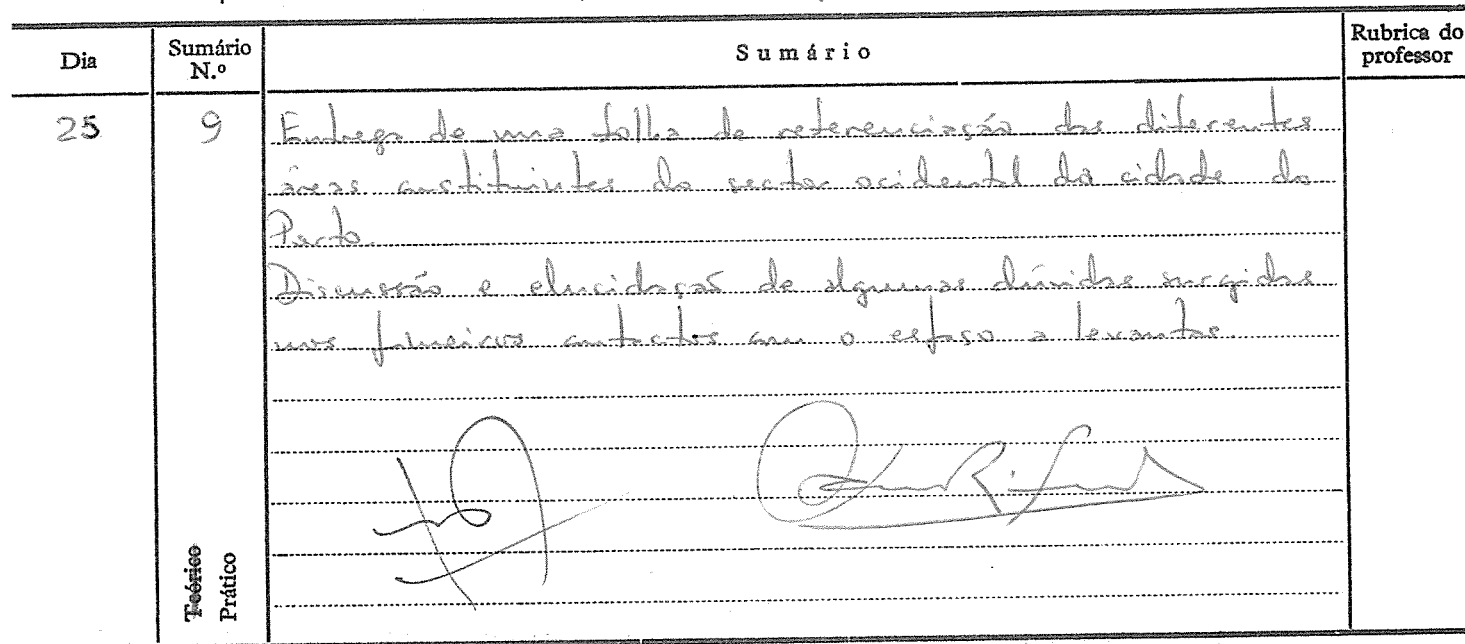 Dia
Sumário N.º
Sumário
Rubrica do professor
25
9
Entrega de uma folha de referenciação das diferentes
áreas constituintes do sector ocidental da cidade do
Porto.
Discussão e elucidação de algumas dúvidas surgidas
nos primeiros contactos com o espaço a levantar.
Teórico
Prático